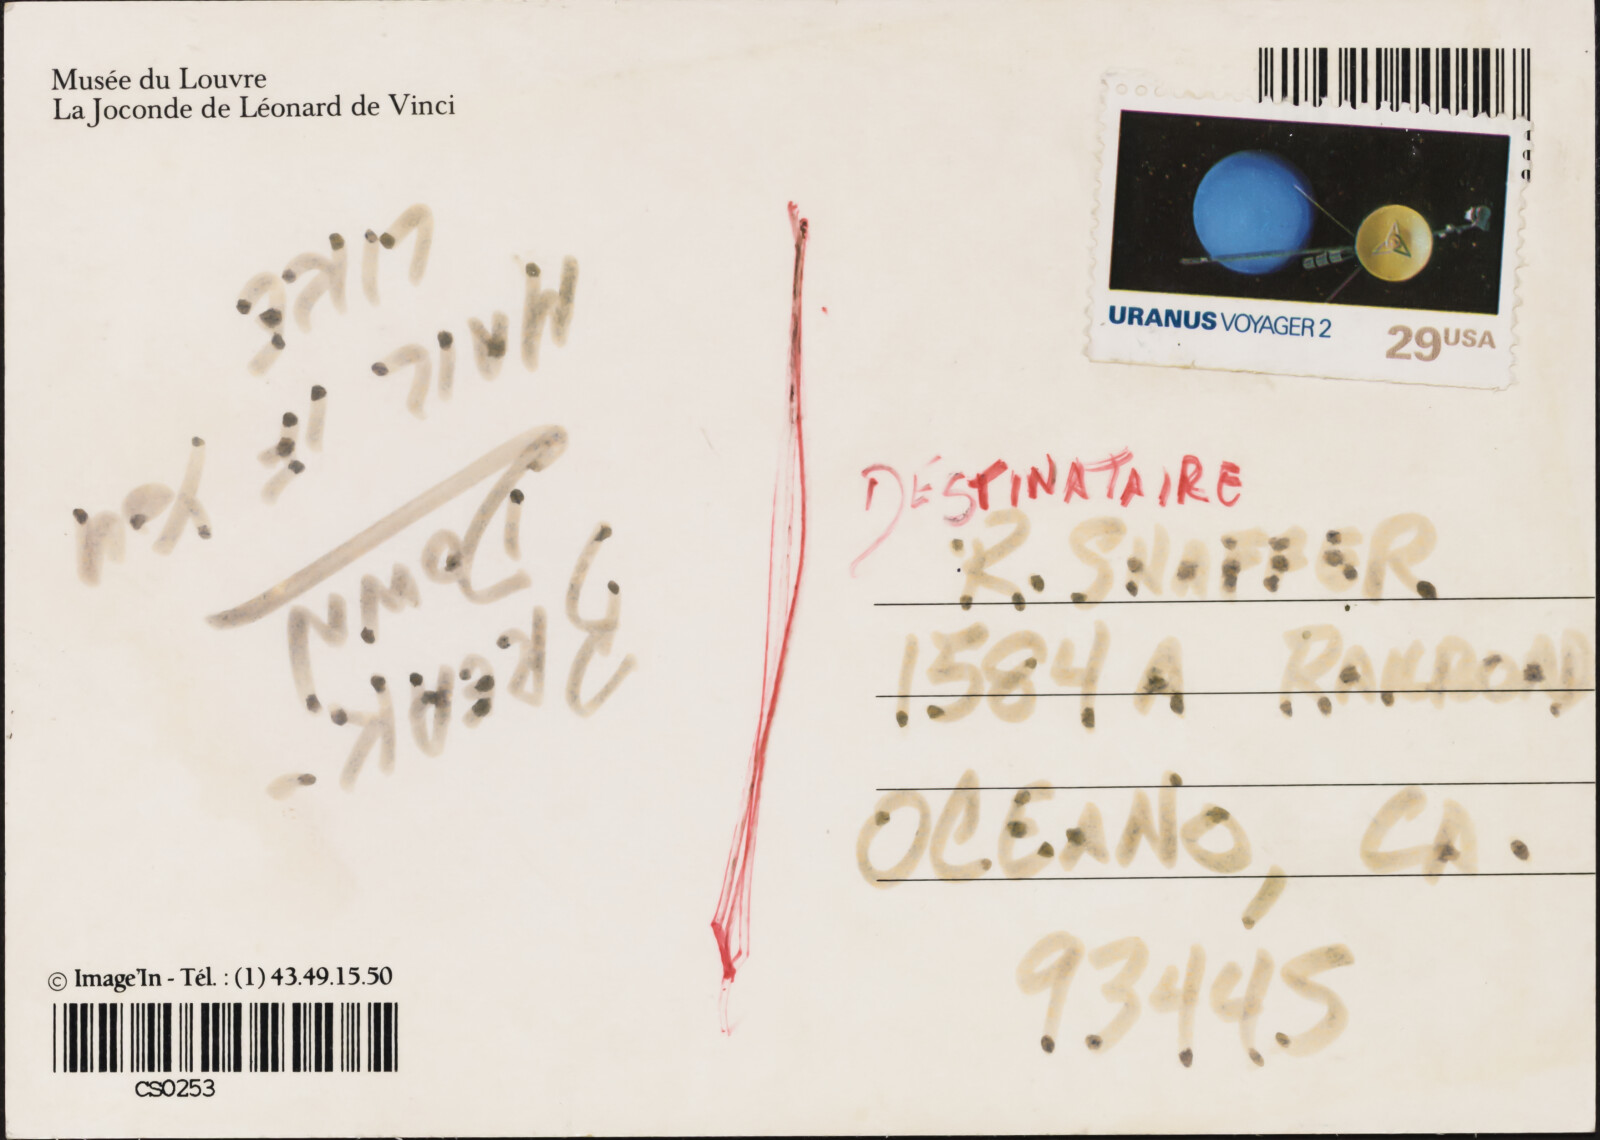 Musée du Louvre
La Joconde de Léonard de Vinci
BREAK-
DOWN
MAIL IF YOU
LIKE
© Image'In - Tél. : (1) 43.49.15.50
CS0253
URANUS VOYAGER 2
29 USA
DESTINATAIRE
R. SHAFFER
1584 A RAILROAD
OCEANO, CA.
93445